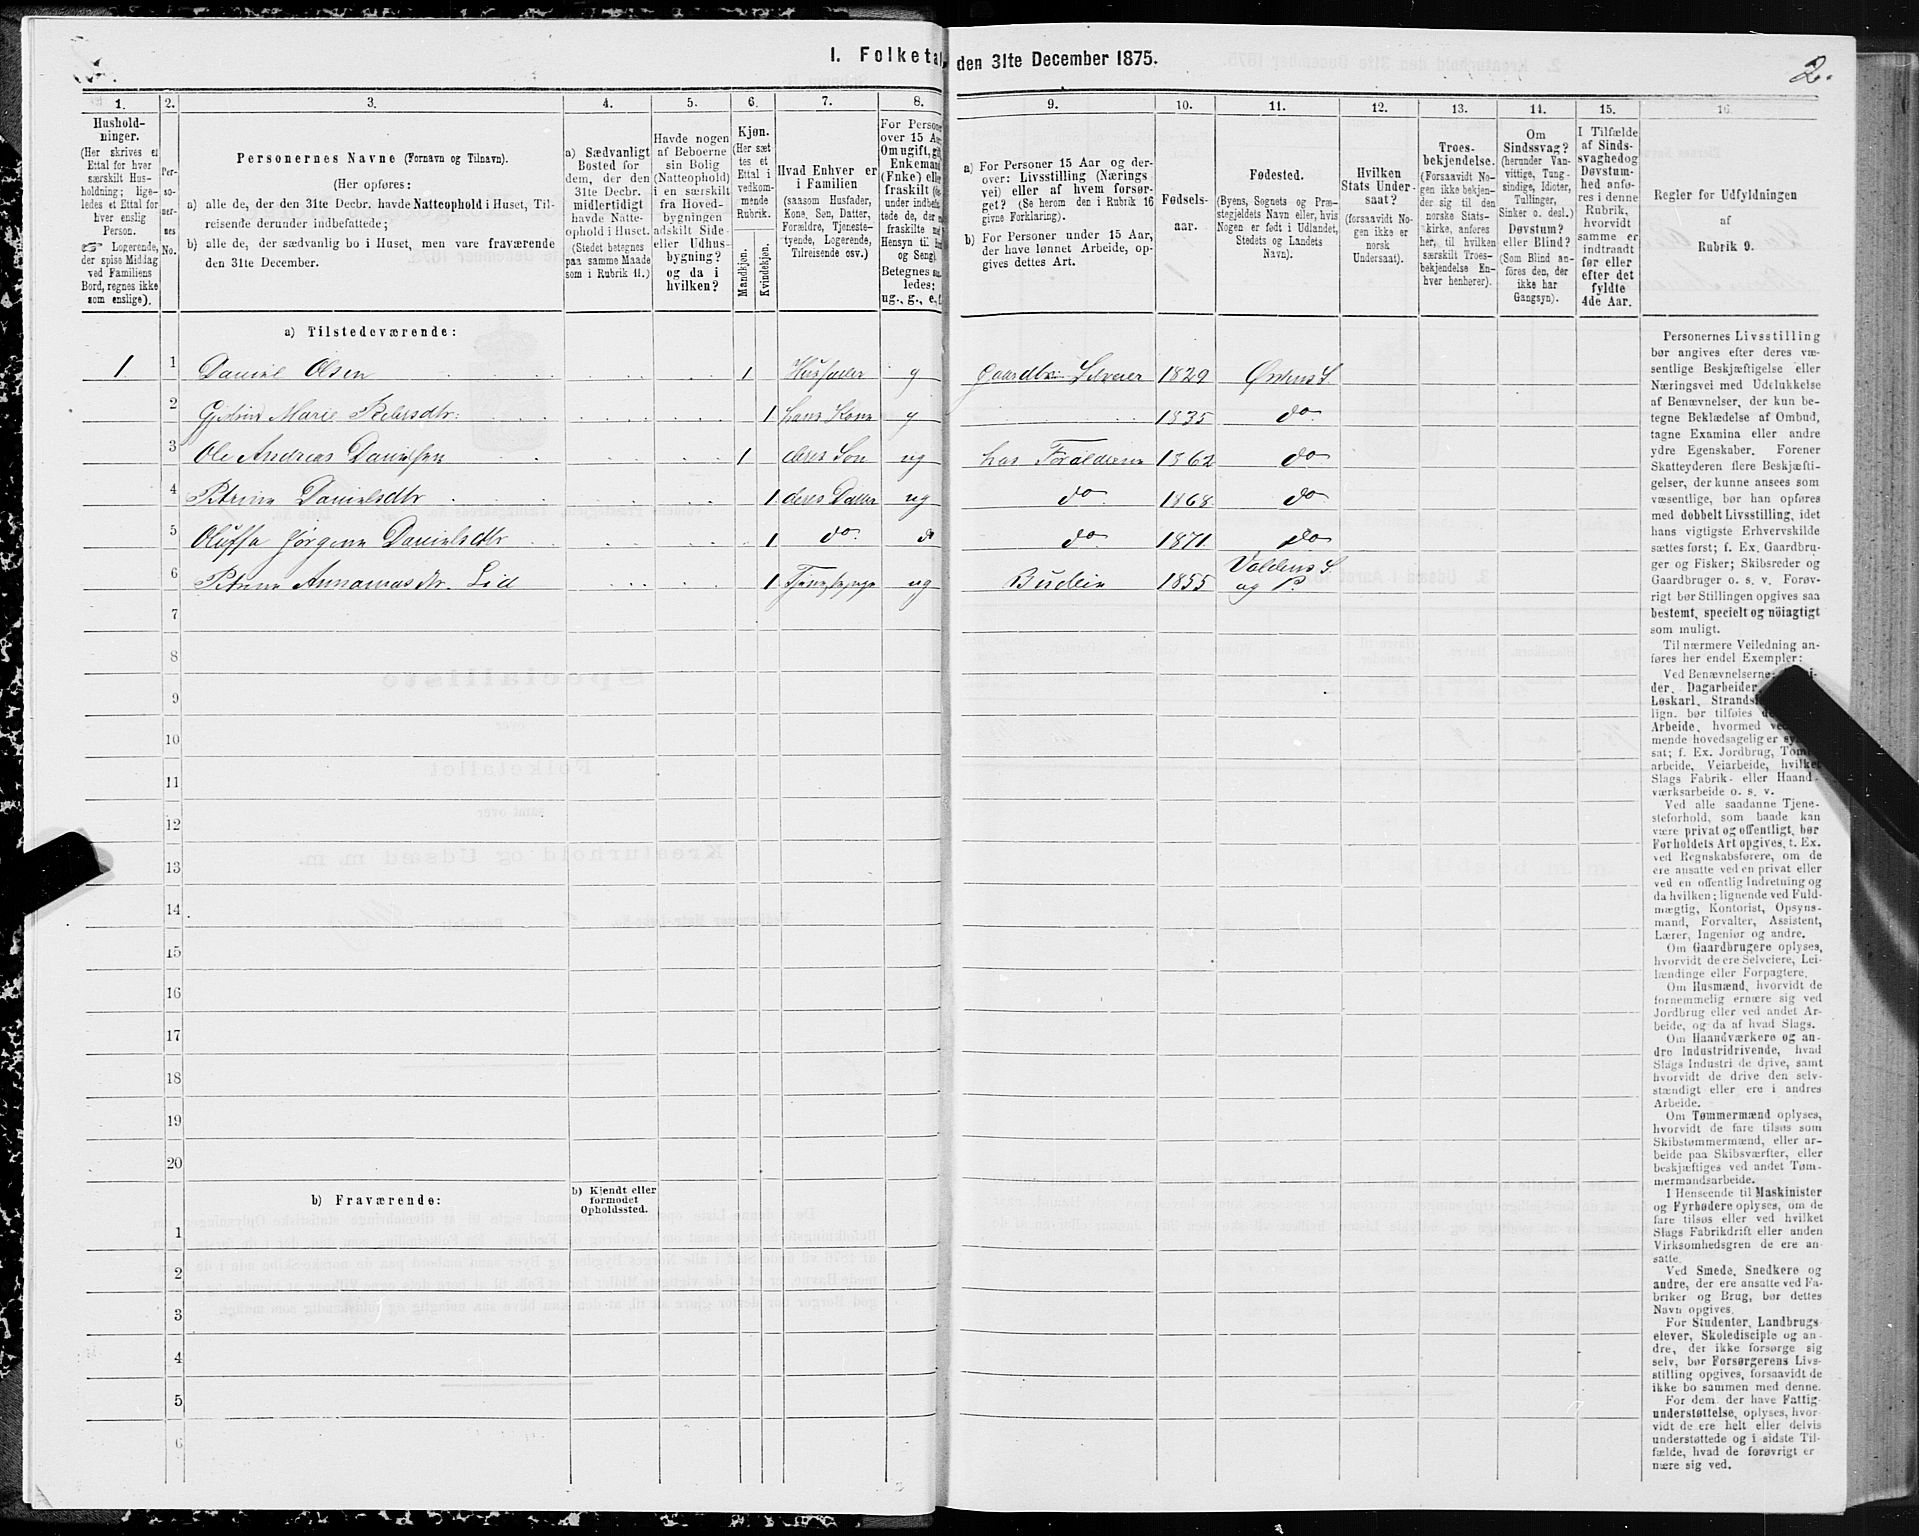 I. Folketal, den 31te December 1875.
2.
1.
Hushold-
ninger.
(Her skrives et
Ettal for hver
særskilt Hus-
holdning; lige-
ledes et Ettal for
hver enslig
Person.
Logerende,
der spise Middag
ved Familiens
Bord, regnes ikke
som enslige).
2.
Per-
so-
ner-
nes
No.
3.
Personernes Navne (Fornavn og Tilnavn).
(Her opføres:
a) alle de, der den 31te Decbr. havde Natteophold i Huset, Til-
reisende derunder indbefattede;
b) alle de, der sædvanlig bo i Huset, men vare fraværende
den 31te December.
4.
a) Sædvanligt
Bosted for
dem, der den
31te Decbr.
midlertidigt
havde Natte-
ophold i Huset.
(Stedet betegnes
paa samme Maade
som i Rubrik 11.)
5.
Havde nogen
af Beboerne
sin Bolig
(Natteophold)
i en særskilt
fra Hoved-
bygningen
adskilt Side-
eller Udhus-
bygning?
og da i
hvilken?
6.
Kjøn.
(Her sæt-
tes et
Ettal i
vedkom-
mende
Rubrik.
Mandkjøn.
Kvindekjøn.
7.
Hvad Enhver er
i Familien
(saasom Husfader,
Kone, Søn, Datter,
Forældre, Tjeneste-
tyende, Logerende,
Tilreisende osv.)
8.
For Personer
over 15 Aar
Omugift, gift,
Enkemand
(Enke) eller
fraskilt
Betegnes saa-
ledes:
ug., g., e.,
9.
a) For Personer 15 Aar og der-
over: Livsstilling (Nærings-
vei) eller af hvem forsør-
get? (Se herom den i Rubrik 16
givne Forklaring).
b) For Personer under 15 Aar,
der have lønnet Arbeide, op-
gives dettes Art.
10.
Fødsels-
aar.
11.
Fødested.
(Byens, Sognets og Præ-
stegjeldets Navn eller, hvis
Nogen er født i Udlandet,
Stedets og Landets
Navn).
12.
Hvilken
Stats Under-
saat?
(forsaavidt No-
gen ikke er
norsk
Undersaat).
13.
Troes-
bekjendelse.
(Forsaavidt No-
gen ikke bekjen-
der sig til den
norske Stats-
kirke, anføres
her, til hvilken
særskilt Troes-
bekjendelse En-
hver henhører).
14.
Om
Sindssvag?
(herunder Van-
vittige, Tung-
sindige, Idioter,
Tullinger,
Sinker o. desl.)
Døvstum?
eller Blind?
(Som Blind an-
føres den, der
ikke har
Gangsyn).
15.
I Tilfælde
af Sinds-
svaghed og
Døvstum-
hed anfø-
res i denne
Rubrik,
hvorvidt
samme er
indtraadt
før eller
efter det
fyldte
4de Aar.
16.
Regler for Udfyldningen
af
Rubrik 9.
a) Tilstedeværende:
1 1 Daniel Olsen 1 Husfader g Gaardbr. Selveier 1829 Østens S.
2 Gjertine Marie Pedersdtr. 1 hans Kone g 1835 do
3 Ole Andreas Danielsen 1 deres Søn ug hos Forældrene 1862 do
4 Petrine Danielsdtr 1 deres Datter ug do 1868 do
5 Oluffa Jørgine Danielsdtr 1 do. do do. 1871 do
6 Petrine Annanias dtr. Lid 1 ug Budeie 1855 Voldens S.
og P.
7
8
9
10
11
12
13
14
15
16
17
18
19
20
b) Fraværende:
b) Kjendt eller
formodet
Opholdssted.
1
2
3
4
5
6
Personernes Livsstilling
bør angives efter deres væ-
sentlige Beskjæftigelse eller
Næringsvei med Udelukkelse
af Benævnelser, der kun be-
tegne Beklædelse af Ombud,
tagne Examina eller andre
ydre Egenskaber. Forener
Skatteyderen flere Beskjæfti-
gelser, der kunne ansees som
væsentlige, bør han opføres
med dobbelt Livsstilling, idet
hans vigtigste Erhvervskilde
sættes først; f. Ex. Gaardbru-
ger og Fisker; Skibsreder og
Gaardbruger o. s. v. Forøv-
rigt bør Stillingen opgives saa
bestemt, specielt og nöiagtigt
som muligt.
Til nærmere Veiledning an-
føres her endel Exempler:
Ved Benævnelserne:
der, Dagarbeider
Løskarl, Strands
lign. bør tilføies
Arbeide, hvormed
mende hovedsagelig er
sat; f. Ex. Jordbrug, Tom
arbeide, Veiarbeide, hvilket
Slags Fabrik- eller Haand-
værksarbeide o. s. v.
Ved alle saadanne Tjene-
steforhold, som baade kan
være privat og offentligt, bør
Forholdets Art opgives, t. Ex.
ved Regnskabsførere, om de
ere ansatte ved en privat eller
ved en offentlig Indretning og
da hvilken; lignende ved Fuld-
mægtig, Kontorist, Opsyns-
mand, Forvalter, Assistent,
Lærer, Ingeniør og andre.
Om Gaardbrugere oplyses,
hvorvidt de ere Selveiere, Lei-
lændinge eller Forpagtere.
Om Husmænd, hvorvidt de
fornemmelig ernære sig ved
Jordbrug eller ved andet Ar-
beide, og da af hvad Slags.
Om Haandværkere og an-
dre Industridrivende, hvad
Slags Industri de drive, samt
hvorvidt de drive den selv-
stændigt eller ere i andres
Arbeide.
Om Tømmermænd oplyses,
hvorvidt de fare tilsøs som
Skibstømmermænd, eller ar-
beide paa Skibsværfter, eller
beskjæftiges ved andet Tøm-
mermandsarbeide.
I Henseende til Maskinister
og Fyrbødere oplyses, om de
fare tilsøs eller ved hvilket
Slags Fabrikdrift eller anden
Virksomhedsgren de ere an-
satte.
Ved Smede, Snedkere og
andre, der ere ansatte ved Fa-
briker og Brug, bør dettes
Navn opgives.
For Studenter, Landbrugs-
elever, Skoledisciple og an-
dre, der ikke forsørge sig
selv, bør Forsørgerens Livs-
stilling opgives, forsaavidt de
ikke bo sammen med denne.
For dem, der have Fattig-
understøttelse, oplyses, hvor-
vidt de ere helt eller delvis
understøttede og i sidste Til-
fælde, hvad de forøvrigt er-
nære sig ved.